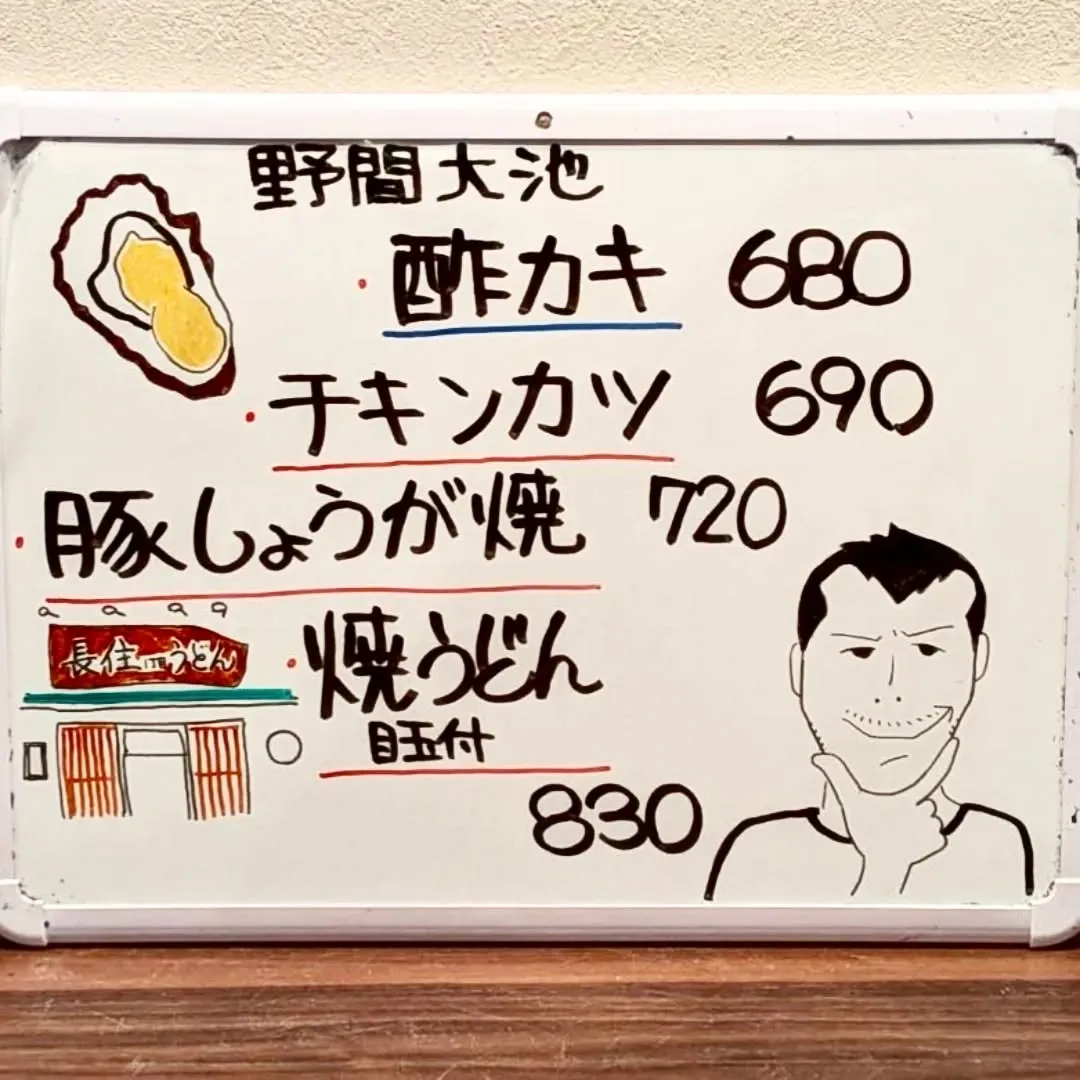 野間大池
・酢カキ 680
・チキンカツ 690
・豚しょうが焼 720
長住皿うどん
・焼うどん
目玉付
830